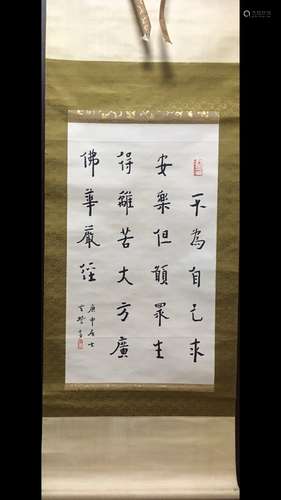 不為自己求
安樂但願眾生
得離苦大方廣
佛華嚴經
庚申居士